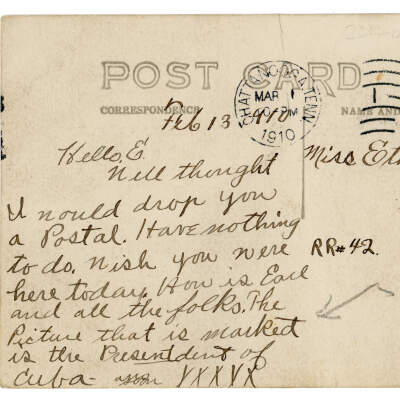 POST CARD
CORRESPONDENCE
NAME AND
CHATTANOOGA, TENN.
MAR 1
PM
1910
Feb 13 1910
Hello, E.
Well thought
I would drop you
a Postal. Have nothing
to do. Wish you were
here today. How is Earl
and all the folks. The
Picture that is marked
is the Presentdent of
Cuba- XXXXX
Miss Et
RR#42.